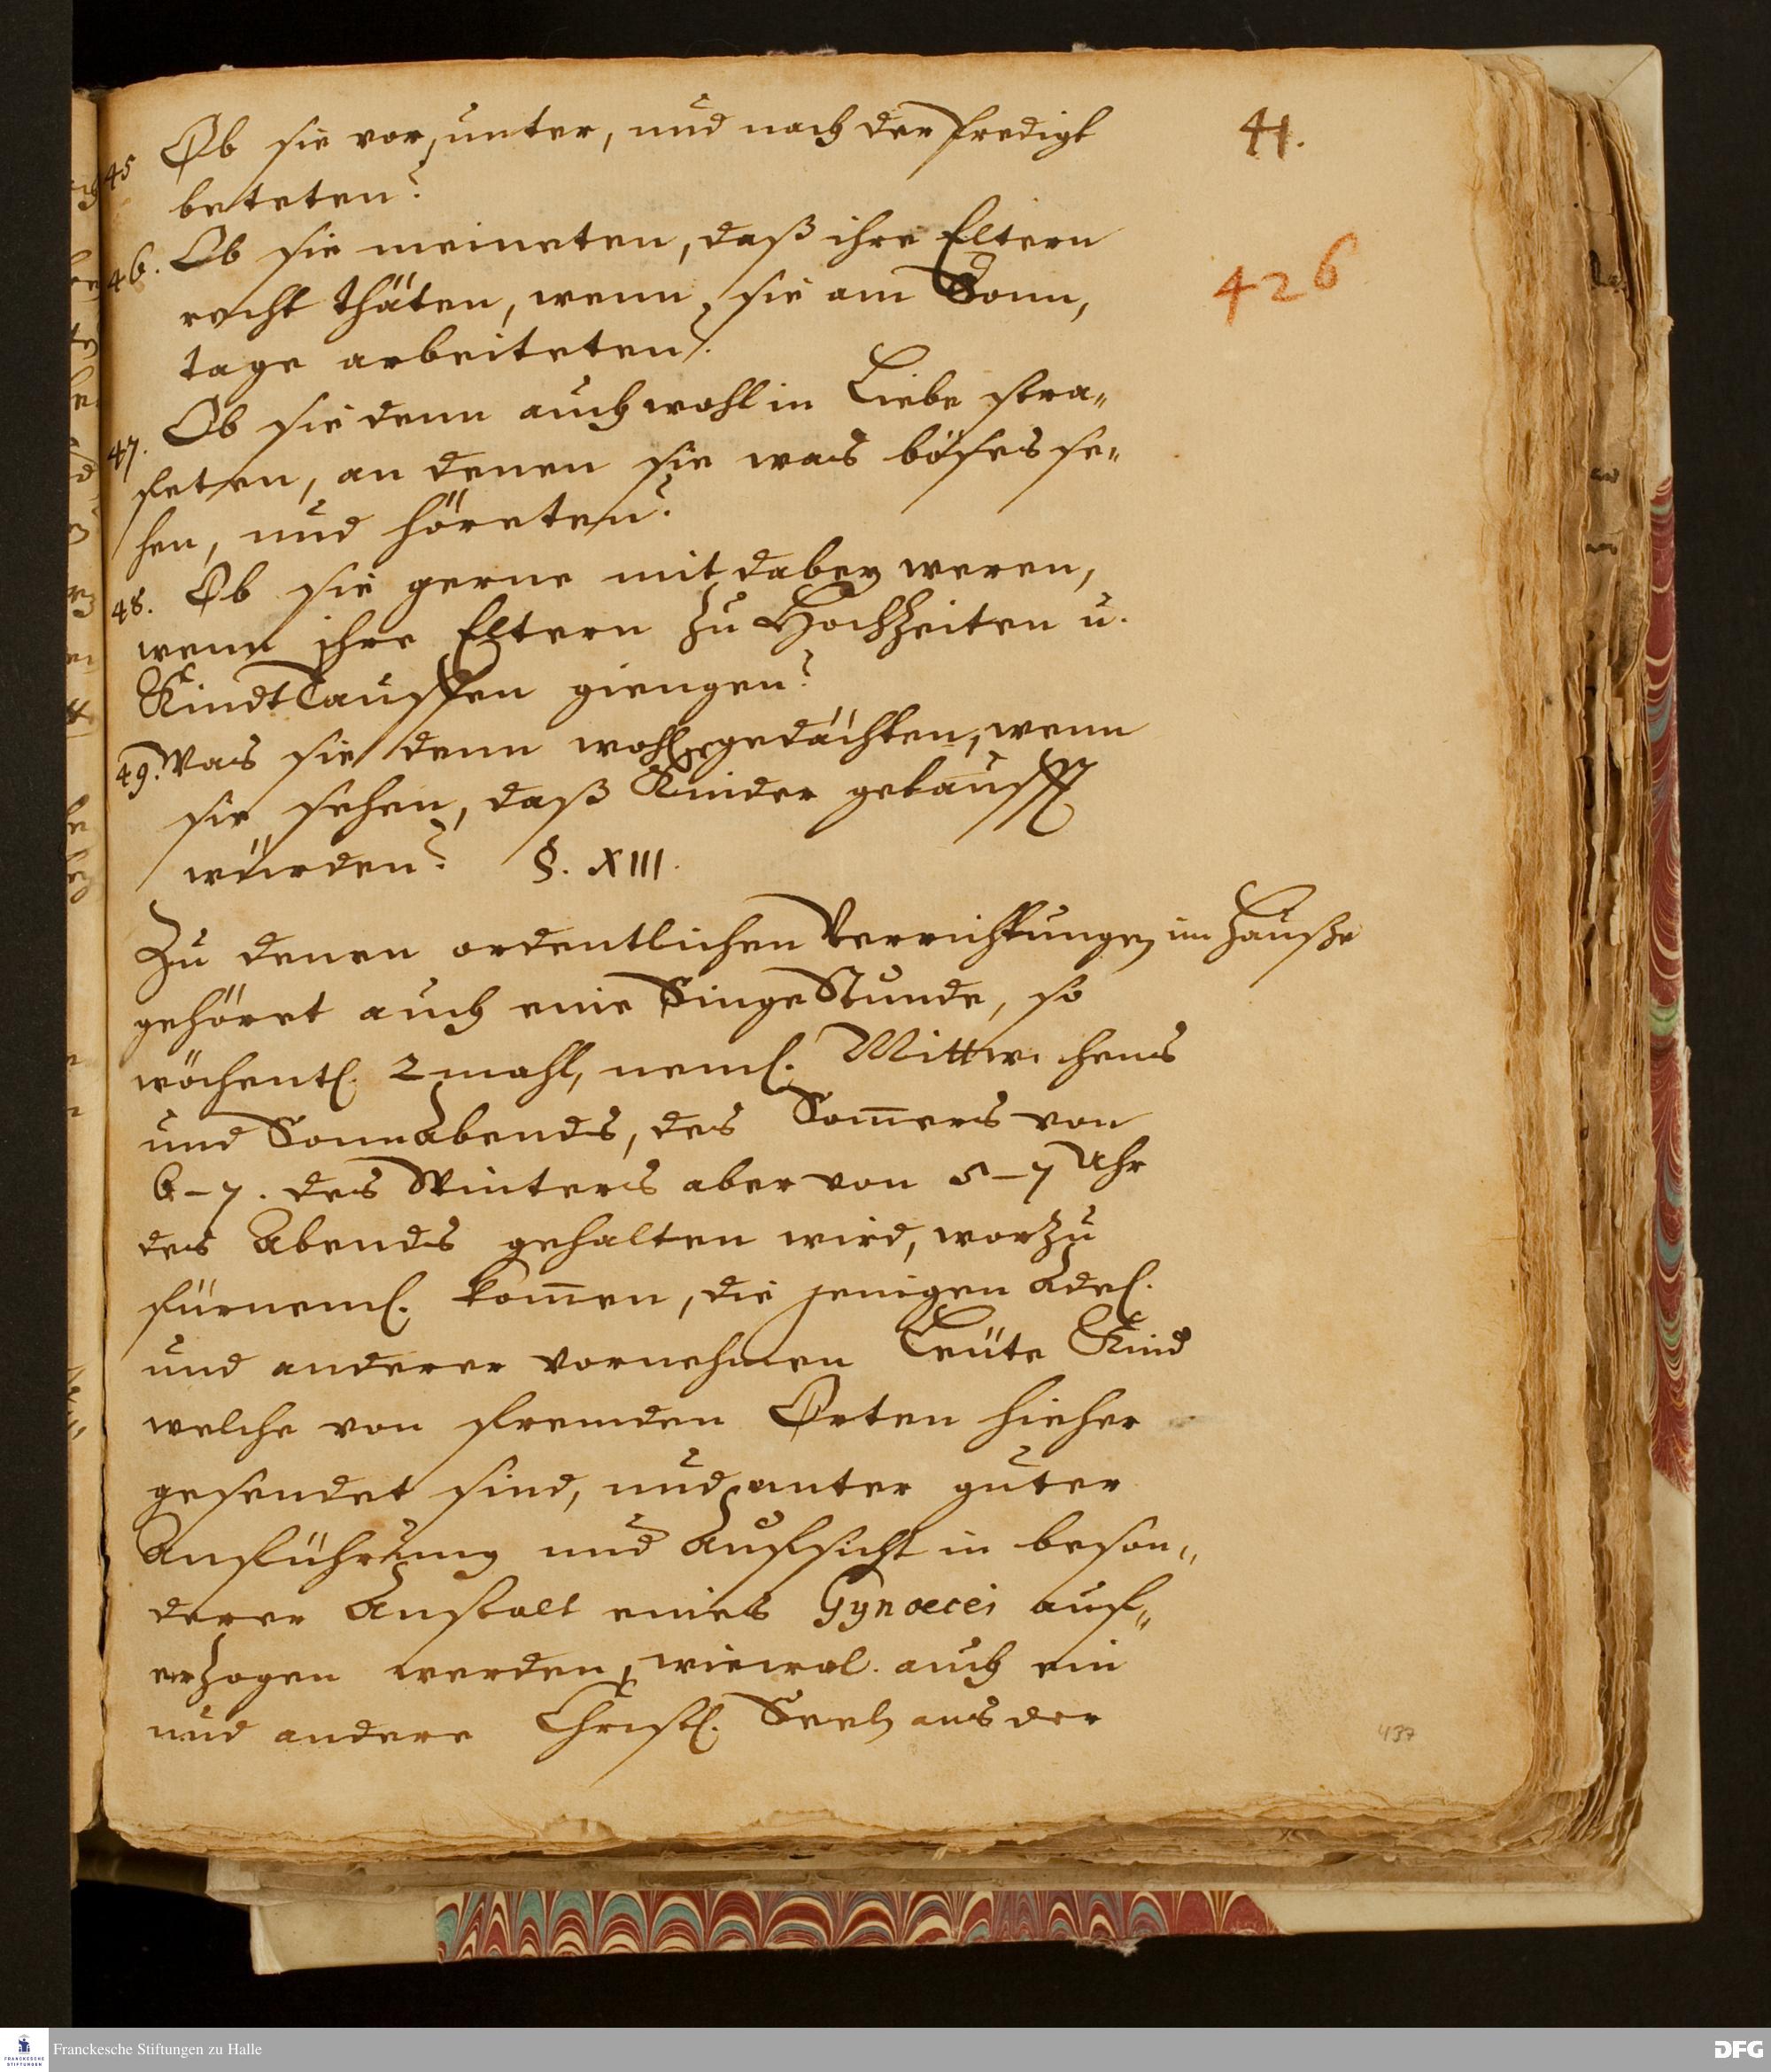 41.
45 Ob sie vor, unter, und nach der Predigt
beteten?
426
46. Ob sie meineten, daß ihre Eltern
recht thäten, wenn sie am Sonn,
tage arbeiteten?
47. Ob sie denn auch wohl in Liebe stra„
feten, an denen sie was böses se„
hen, und höreten?
48. Ob sie gerne mit dabey weren,
wenn ihre Eltern zu Hochzeiten u.
Kindtauffen giengen?
49. Was sie denn wohl gedächten, wenn
sie sehen, daß Kinder getaufft
würden? §. XIII.
Zu denen ordentlichen Verrichtungen im Hauße
gehöret auch eine SingeStunde, so
wöchentl. 2 mahl, neml. Mittwochens
und Sonnabends, des Som̅ers von
6–7. des Winters aber von 5–7 Uhr
des Abends gehalten wird, worzu
fürneml. kom̅en, die jenigen Adel.
und anderer vornehmen Leüte Kind
welche von fremden Orten hieher
gesendet sind, und unter guter
Anführung und Aufsicht in beson„
derer Anstalt eines Gynoecei auf„
erzogen werden, wiewol. auch ein
und andere Christl. Seelen aus der
437
Franckesche Stiftungen zu Halle
FRANCKESCHE STIFTUNGEN
DFG